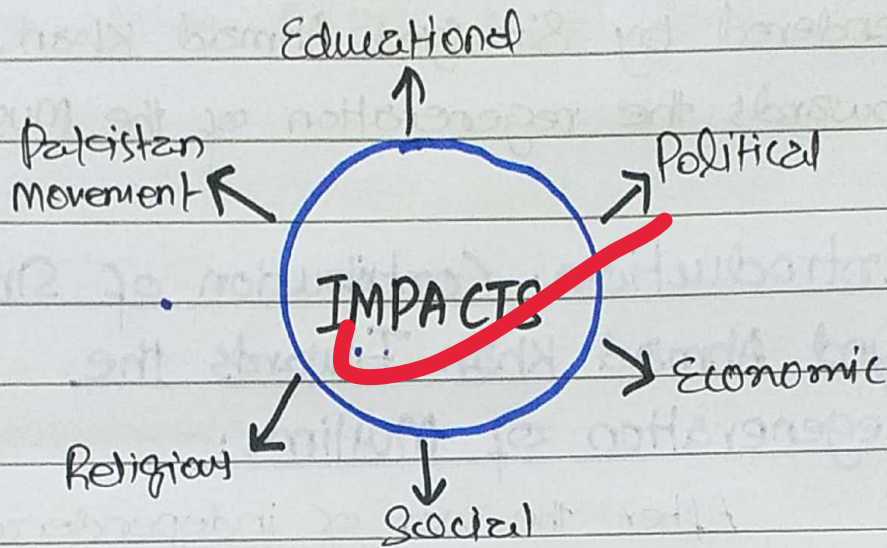 Educational
Pakistan
Movement
Political
IMPACTS
Economic
Religious
Social